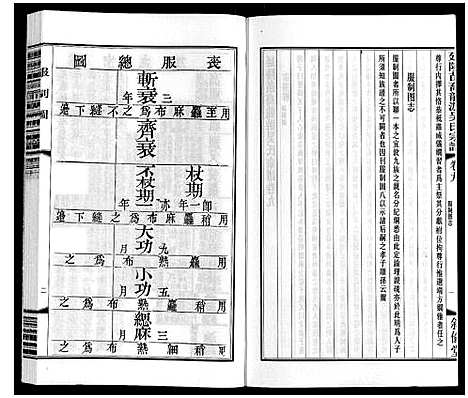 尊行內擇其恪恭祗威儀嫺習者爲主祭其分獻糾拘等行惟選端方嫺雅者任之
服制图志
服制圖者所以別一本之宜敦九族之親名分紀綱悉由此定論理說疏亦於此明爲人子
所須知族譜之不可闕者也因刊服制圖八以示諸后嗣之孝子順孫云爾
卷九
服制圖志
一
喪服總圖
斬衰 三年
用至麤麻布爲之不縫下邊
齊衰
杖期
不杖期
即一年亦
用稍麤麻布爲之縫下邊
大功 九月
用麤熟布爲之
小功 五月
用稍麤熟布爲之
緦麻 三月
用稍細熟布爲之
服制圖
二